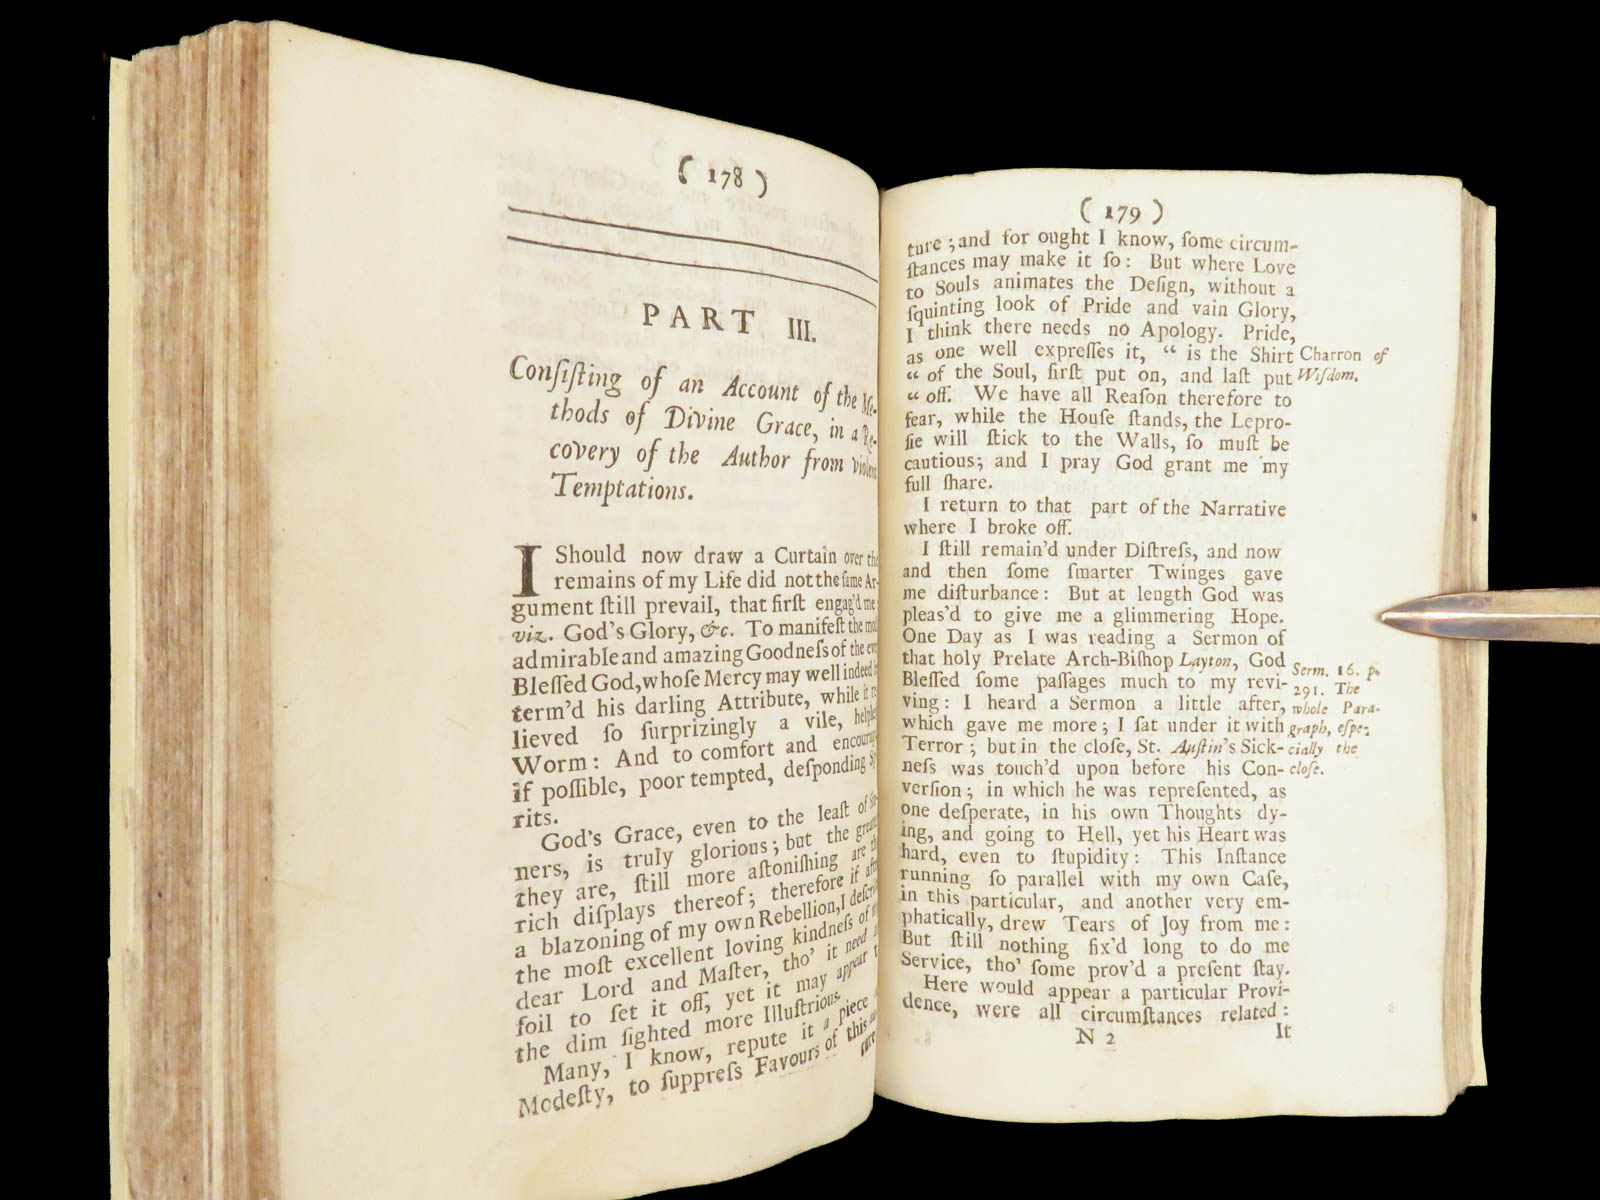 ( 178 )
PART III.
Conſiſting of an Account of the Me-
thods of Divine Grace, in a Re-
covery of the Author from Violent
Temptations.
I Should now draw a Curtain over the
remains of my Life did not the ſame Ar-
gument ſtill prevail, that firſt engag'd me:
viz. God's Glory, &c. To manifeſt the moſt
admirable and amazing Goodneſs of the ever
Bleſſed God, whoſe Mercy may well indeed
term'd his darling Attribute, while it re-
lieved ſo ſurprizingly a vile, helpleſs
Worm: And to comfort and encourage
if poſſible, poor tempted, deſponding Spi-
rits.
God's Grace, even to the leaſt of Sin-
ners, is truly glorious; but the greater
they are, ſtill more aſtoniſhing are the
rich diſplays thereof; therefore if after
a blazoning of my own Rebellion, I deſcribe
the moſt excellent loving kindneſs of
dear Lord and Maſter, tho' it need
foil to ſet it off, yet it may appear
the dim ſighted more Illuſtrious.
Many, I know, repute it a piece
Modeſty, to ſuppreſs Favours of this
ture
( 179 )
ture; and for ought I know, ſome circum-
ſtances may make it ſo: But where Love
to Souls animates the Deſign, without a
ſquinting look of Pride and vain Glory,
I think there needs no Apology. Pride,
as one well expreſſes it, “ is the Shirt
“ of the Soul, firſt put on, and laſt put
“ off. We have all Reaſon therefore to
fear, while the Houſe ſtands, the Lepro-
ſie will ſtick to the Walls, ſo muſt be
cautious; and I pray God grant me my
full ſhare.
Charron of
Wiſdom.
I return to that part of the Narrative
where I broke off.
I ſtill remain'd under Diſtreſs, and now
and then ſome ſmarter Twinges gave
me diſturbance: But at length God was
pleas'd to give me a glimmering Hope.
One Day as I was reading a Sermon of
that holy Prelate Arch-Biſhop Layton, God
Bleſſed ſome paſſages much to my revi-
ving: I heard a Sermon a little after,
which gave me more; I ſat under it with
Terror; but in the cloſe, St. Auſtin's Sick-
neſs was touch'd upon before his Con-
verſion; in which he was repreſented, as
one deſperate, in his own Thoughts dy-
ing, and going to Hell, yet his Heart was
hard, even to ſtupidity: This Inſtance
running ſo parallel with my own Caſe,
in this particular, and another very em-
phatically, drew Tears of Joy from me:
But ſtill nothing fix'd long to do me
Service, tho' ſome prov'd a preſent ſtay.
Serm. 16. p.
291. The
whole Para-
graph, eſpe-
cially the
cloſe.
Here would appear a particular Provi-
dence, were all circumſtances related:
N 2
It